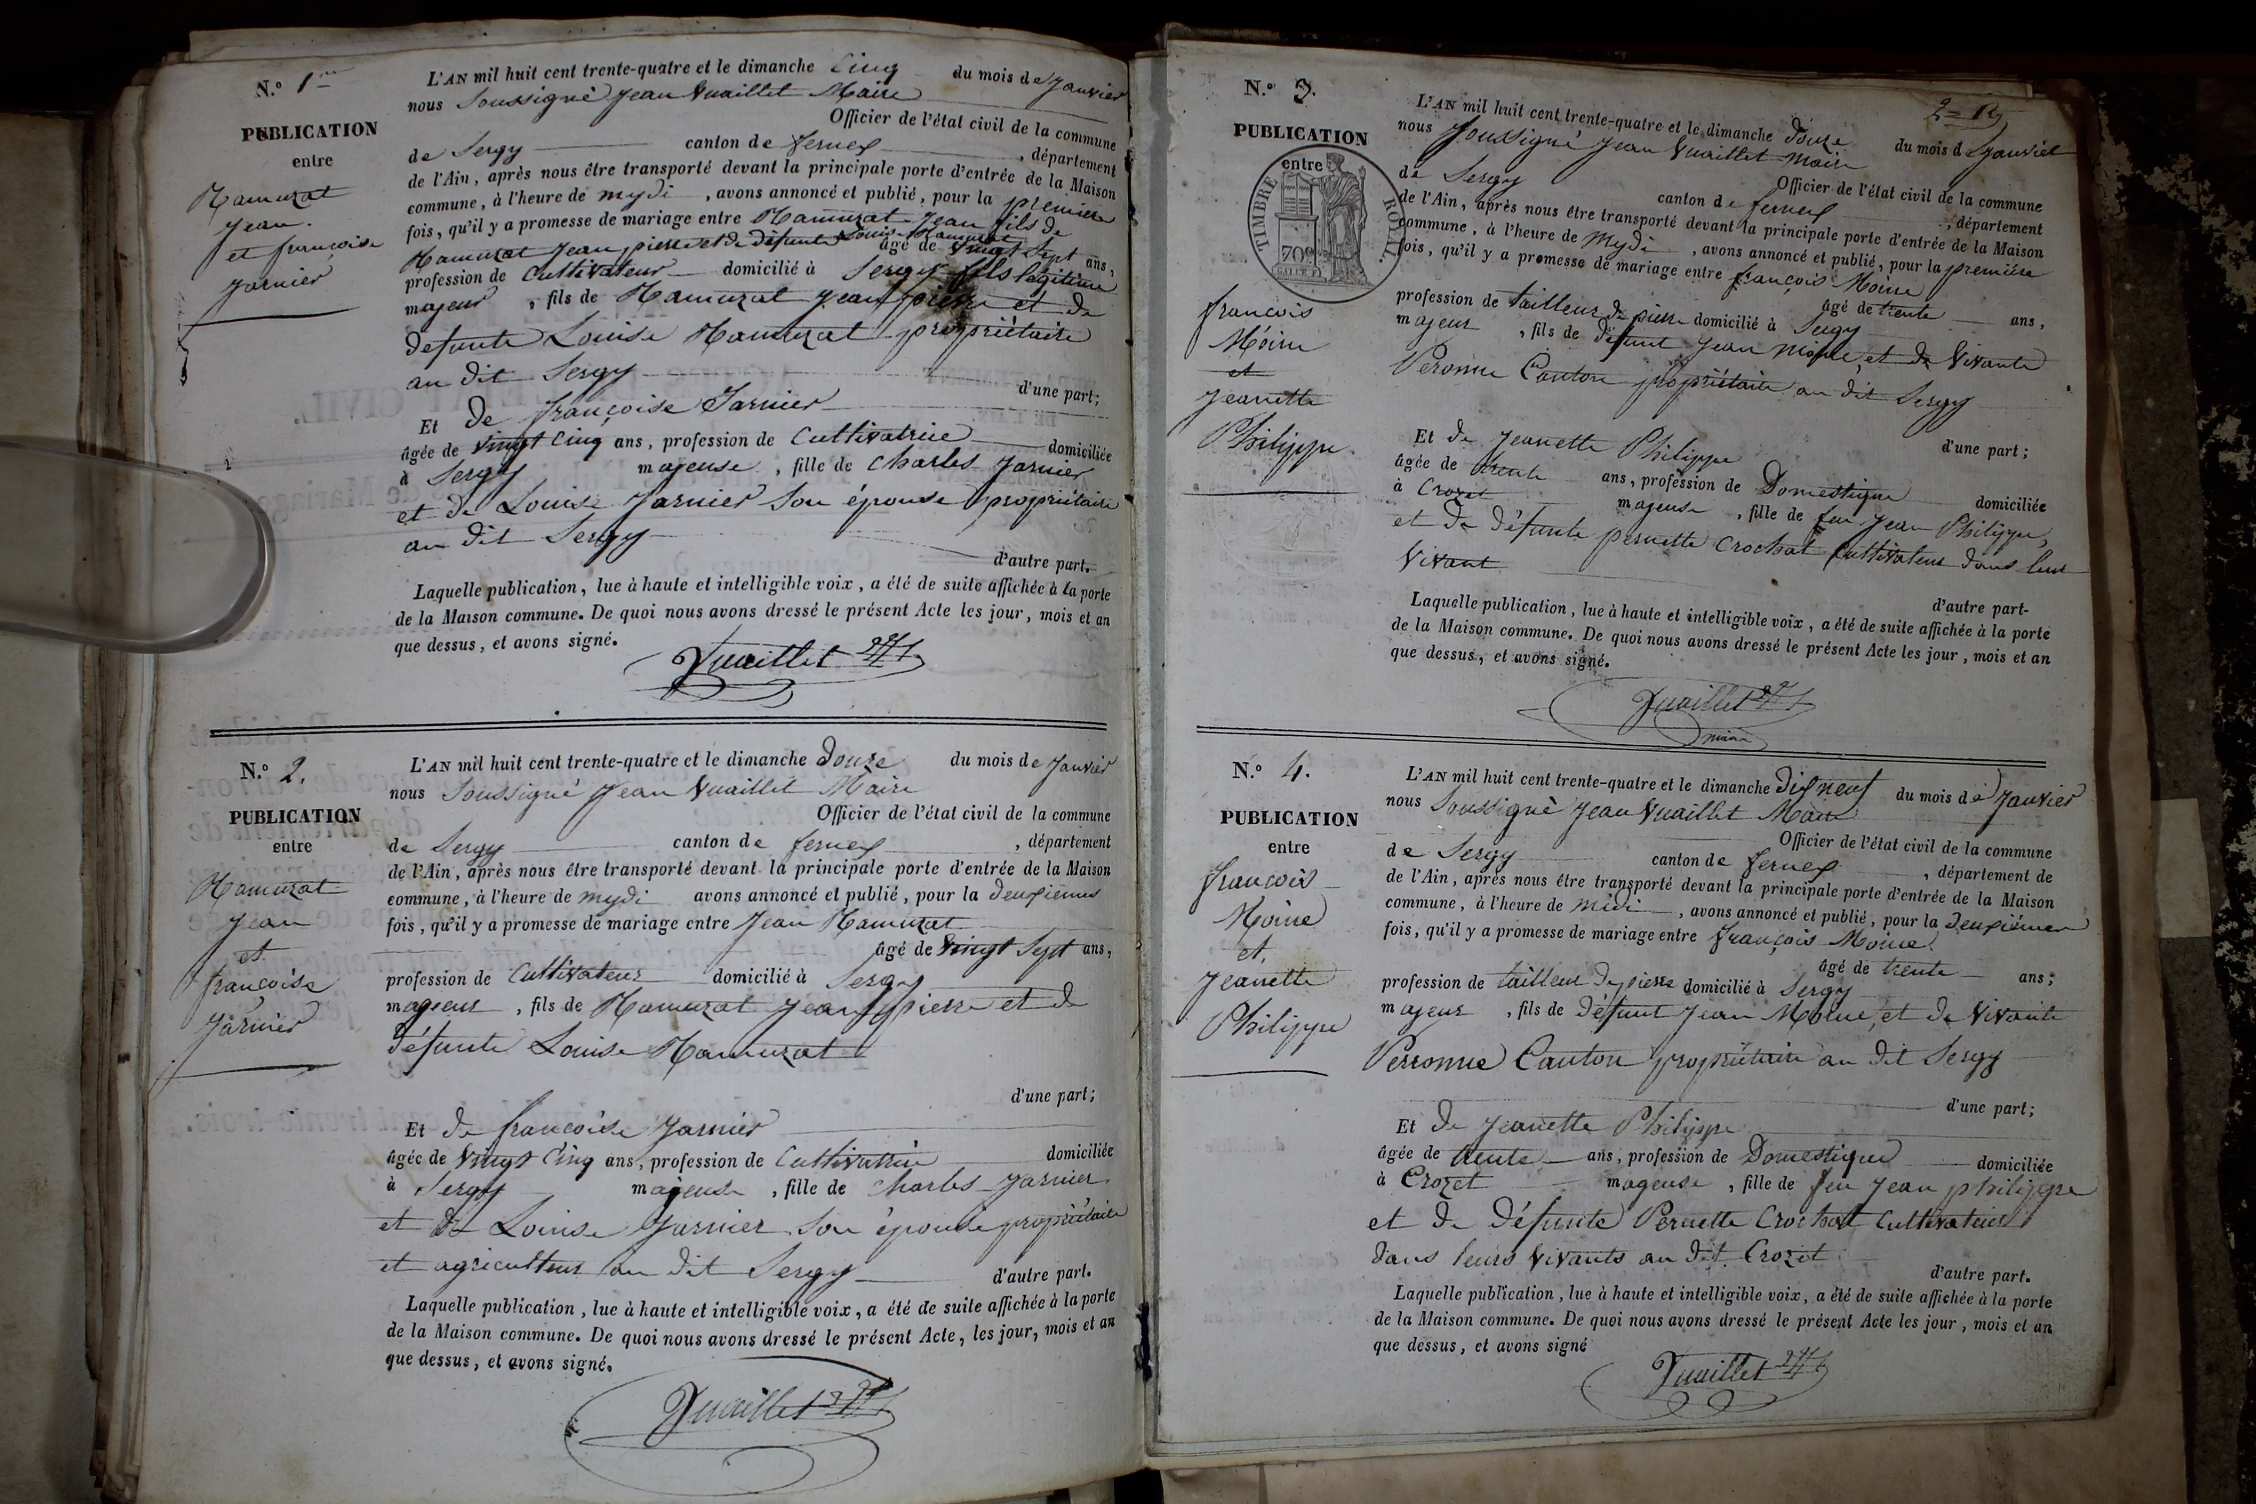 N.º 1re
PUBLICATION
entre
Hamurat
Jean
et françoise
Jarnier
L'AN mil huit cent trente-quatre et le dimanche Cinq du mois de Janvier
nous Soussigné Jean Vuaillet Maire
Officier de l'état civil de la commune
de Sergy canton de ferney , département
de l'Ain, après nous être transporté devant la principale porte d'entrée de la Maison
commune, à l'heure de mydi , avons annoncé et publié, pour la premiere
fois, qu'il y a promesse de mariage entre Hamurat Jean fils de
Hamurat Jean pierre et de défunte Louise Hamurat âgé de vingt Sept ans,
profession de Cultivateur domicilié à Sergy fils légitime
majeur , fils de Hamurat Jean pierre et de
défunte Louise Hamurat propriétaire
au dit Sergy
d'une part;
Et De françoise Jarnier
âgée de vingt Cinq ans, profession de Cultivatrice domiciliée
à Sergy majeuse , fille de Charles Jarnier
et de Louise Jarnier Son épouse propriétaire
au dit Sergy
d'autre part.
Laquelle publication, lue à haute et intelligible voix, a été de suite affichée à la porte
de la Maison commune. De quoi nous avons dressé le présent Acte les jour, mois et an
que dessus, et avons signé.
Vuaillet
N.º 2.
PUBLICATION
entre
Hamurat
Jean
et
françoise
Jarnier
L'AN mil huit cent trente-quatre et le dimanche Douze du mois de Janvier
nous Soussigné Jean Vuaillet Maire
Officier de l'état civil de la commune
de Sergy canton de ferney , département
de l'Ain, après nous être transporté devant la principale porte d'entrée de la Maison
commune, à l'heure de mydi avons annoncé et publié, pour la deuxiemes
fois, qu'il y a promesse de mariage entre Jean Hamurat
âgé de Vingt Sept ans,
profession de Cultivateur domicilié à Sergy
majeur , fils de Hamurat Jean pierre et de
défunte Louise Hamurat
d'une part;
Et De françoise Jarnier
âgée de Vingt Cinq ans, profession de Cultivatrice domiciliée
à Sergy majeuse , fille de Charles Jarnier
et de Louise Jarnier Son épouse propriétaire
et agriculteur au dit Sergy
d'autre part.
Laquelle publication, lue à haute et intelligible voix, a été de suite affichée à la porte
de la Maison commune. De quoi nous avons dressé le présent Acte, les jour, mois et an
que dessus, et avons signé.
Vuaillet
N.º 3.
PUBLICATION
entre
TIMBRE ROYAL.
70c
françois
Moine
et
Jeanette
Philippe
L'AN mil huit cent trente-quatre et le dimanche douze du mois de Janvier
nous Soussigné Jean Vuaillet maire
Officier de l'état civil de la commune
de Sergy canton de ferney , département
de l'Ain, après nous être transporté devant la principale porte d'entrée de la Maison
commune, à l'heure de Mydi , avons annoncé et publié, pour la première
fois, qu'il y a promesse de mariage entre françois Moine
âgé de trente ans,
profession de tailleur de pierre domicilié à Sergy
majeur , fils de défunt Jean Moine, et de Vivante
Péronne Canton propriétaire au dit Sergy
d'une part;
Et de Jeanette Philippe
âgée de trente ans, profession de Domestique domiciliée
à Crozet majeuse , fille de feu Jean Philippe,
et de défunte pernette Crochat Cultivateur dans leur
Vivant
d'autre part-
Laquelle publication, lue à haute et intelligible voix, a été de suite affichée à la porte
de la Maison commune. De quoi nous avons dressé le présent Acte les jour, mois et an
que dessus, et avons signé.
Vuaillet
maire
N.º 4.
PUBLICATION
entre
françois
Moine
et
Jeanette
Philippe
L'AN mil huit cent trente-quatre et le dimanche Dix neuf du mois de Janvier
nous Soussigné Jean Vuaillet Maire
Officier de l'état civil de la commune
de Sergy canton de ferney , département de
de l'Ain, après nous être transporté devant la principale porte d'entrée de la Maison
commune, à l'heure de Midi , avons annoncé et publié, pour la deuxiémes
fois, qu'il y a promesse de mariage entre françois Moine
âgé de trente ans;
profession de tailleur de pierre domicilié à Sergy
majeur , fils de défunt Jean Moine, et de Vivante
Perronne Canton propriétaire au dit Sergy
d'une part;
Et De Jeanette Philippe
âgée de trente ans, profession de Domestique domiciliée
à Crozet majeuse , fille de feu Jean philippe
et de Défunte Pernette Crochat Cultivateurs
dans leurs Vivants au dit Crozet
d'autre part.
Laquelle publication, lue à haute et intelligible voix, a été de suite affichée à la porte
de la Maison commune. De quoi nous avons dressé le présent Acte les jour, mois et an
que dessus, et avons signé
Vuaillet